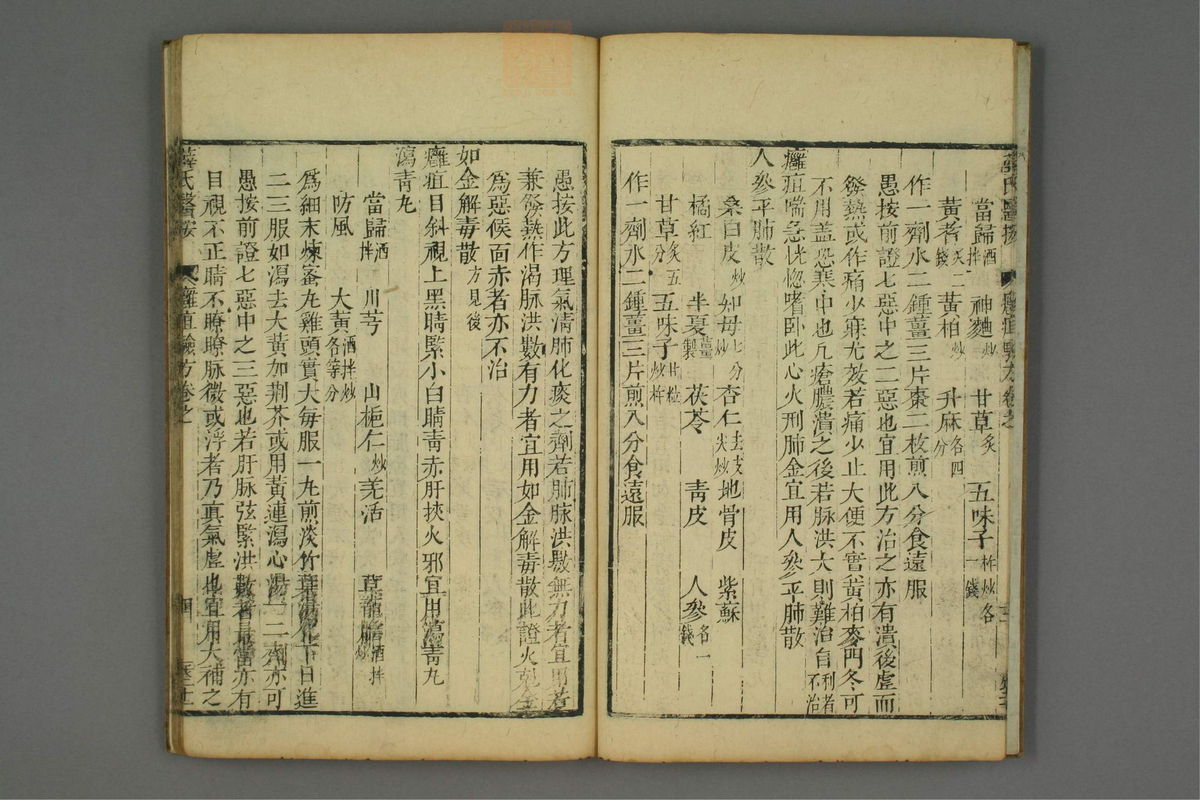 薛氏醫按 癰疽驗方卷之
當歸酒拌 神麯炒 甘草炙 五味子杵炒各一錢
黃芪炙二錢 黃柏炒 升麻各四分
作一劑水二鍾薑三片棗二枚煎八分食遠服
愚按前證七惡中之二惡也宜用此方治之亦有潰後虛而
發熱或作痛少寐尤效若痛少止大便不實黃柏麥門冬可
不用盖恐寒中也凡瘡膿潰之後若脉洪大則難治自利者不治
癰疽喘急恍惚嗜卧此心火刑肺金宜用人參平肺散
人參平肺散
桑白皮炒 知母七分炒 杏仁去皮尖炒 地骨皮 紫蘇
橘紅 半夏薑製 茯苓 青皮 人參各一錢
甘草炙五分 五味子廿粒炒杵
作一劑水二鍾薑三片煎八分食遠服
愚按此方理氣清肺化痰之劑若肺脉洪數無力者宜用若
兼發熱作渴脉洪數有力者宜用如金解毒散此證火剋金
為惡候面赤者亦不治
如金解毒散方見後
癰疽目斜視上黑睛緊小白睛青赤肝挾火邪宜用瀉青丸
瀉青丸
當歸酒拌 川芎 山梔仁炒 羌活 草龍膽酒拌炒
防風 大黃酒拌炒各等分
為細末煉蜜丸雞頭實大每服一丸煎淡竹葉湯化下日進
二三服如瀉去大黃加荆芥或用黃連瀉心湯一二劑亦可
愚按前證七惡中之三惡也若肝脉弦緊洪數者最當亦有
目視不正睛不瞭瞭脉微或浮者乃真氣虛也宜用大補之
薛氏醫按 癰疽驗方卷之